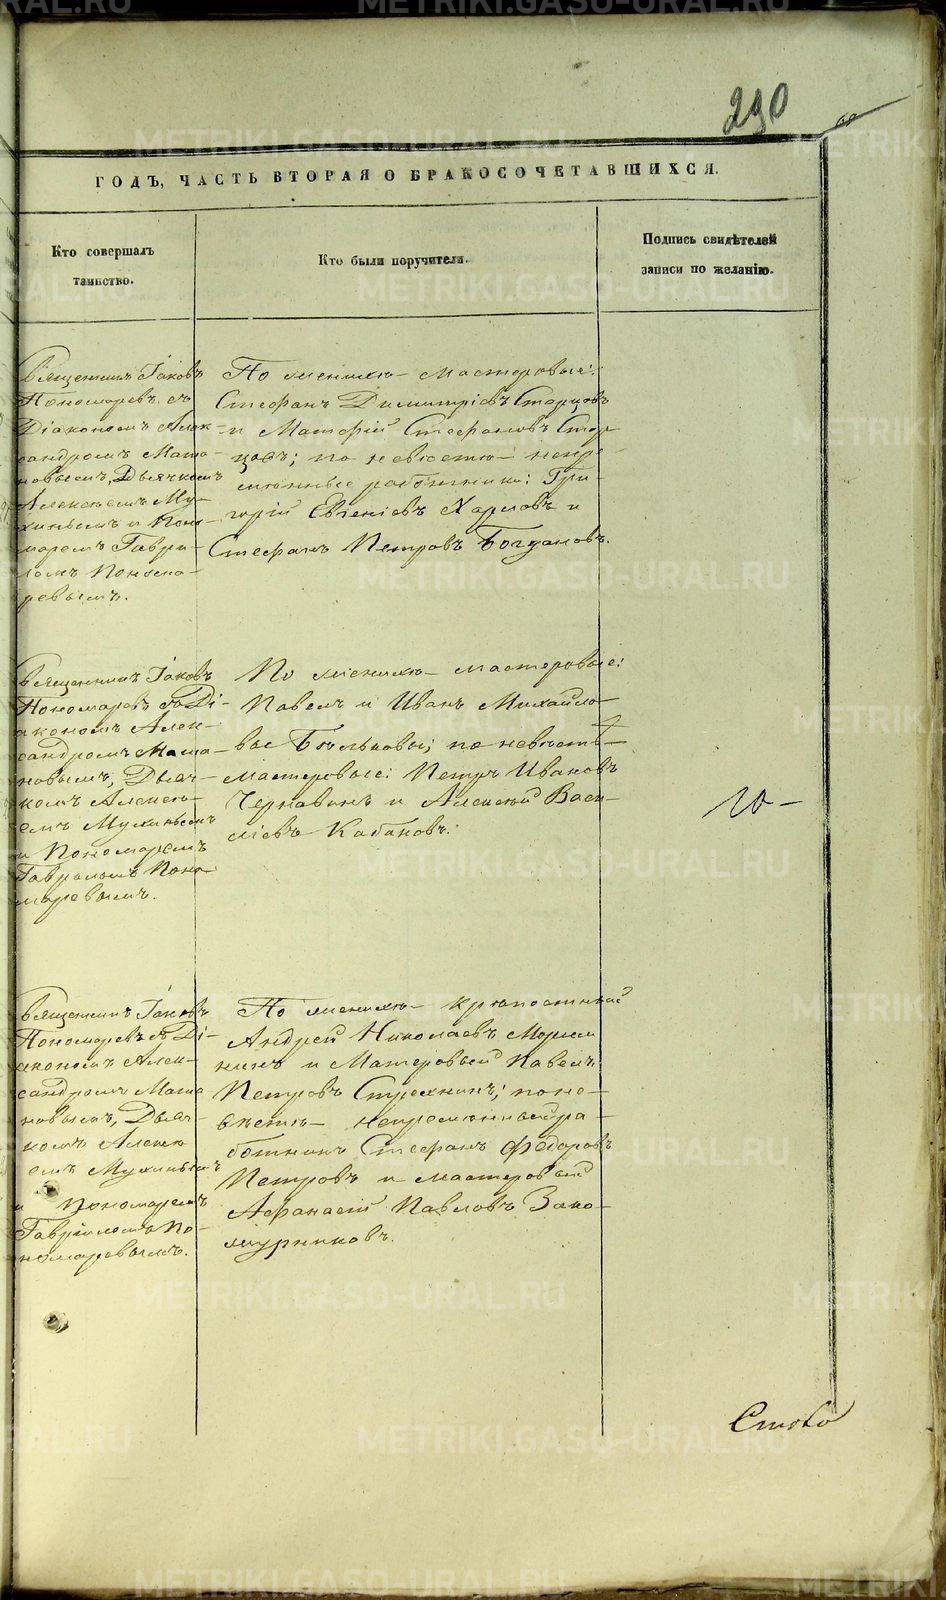 290
ГОДЪ, ЧАСТЬ ВТОРАЯ О БРАКОСОЧЕТАВШИХСЯ.
Кто совершалъ
таинство.
Кто были поручители.
Подпись свидѣтелей
записи по желанію.
Священникъ Іаковъ
Пономаревъ съ
Діакономъ Алек-
сандромъ Мама-
новымъ, Дьячкомъ
Алексѣемъ Му-
хинымъ и Поно-
маремъ Гаври-
ломъ Понома-
ревымъ.
По женихѣ - мастеровые:
Стефанъ Димитріевъ Старцовъ
и Матфій Стефановъ Стар
цовъ; по невѣстѣ - непре
мѣнные работники: Гри-
горій Евгеніевъ Харловъ и
Стефанъ Петровъ Богдановъ.
Священникъ Іаковъ
Пономаревъ съ Ді-
акономъ Алек-
сандромъ Мама-
новымъ, Дьяч-
комъ Алексѣ-
емъ Мухинымъ
и Пономаремъ
Гавриломъ Поно-
маревымъ.
По женихѣ - мастеровые:
Павелъ и Иванъ Михайло-
вы Бѣльковы; по невѣстѣ-
мастеровые: Петръ Ивановъ
Чернавинъ и Алексѣй Васи-
ліевъ Кабановъ.
Священникъ Іаковъ
Пономаревъ съ Ді-
акономъ Алек-
сандромъ Мама
новымъ, Дьяч-
комъ Алексѣ
емъ Мухинымъ
и Пономаремъ
Гавріиломъ По-
номаревымъ.
По женихѣ - крѣпостный
Андрей Николаевъ
и Мастеровый Павелъ
Петровъ Стрехнинъ; по не-
вѣстѣ - непремѣнный ра-
ботникъ Стефанъ Федоровъ
Петровъ и мастеровый
Афанасій Павловъ Зако-
журниковъ.
METRIKI.GASO-URAL.RU